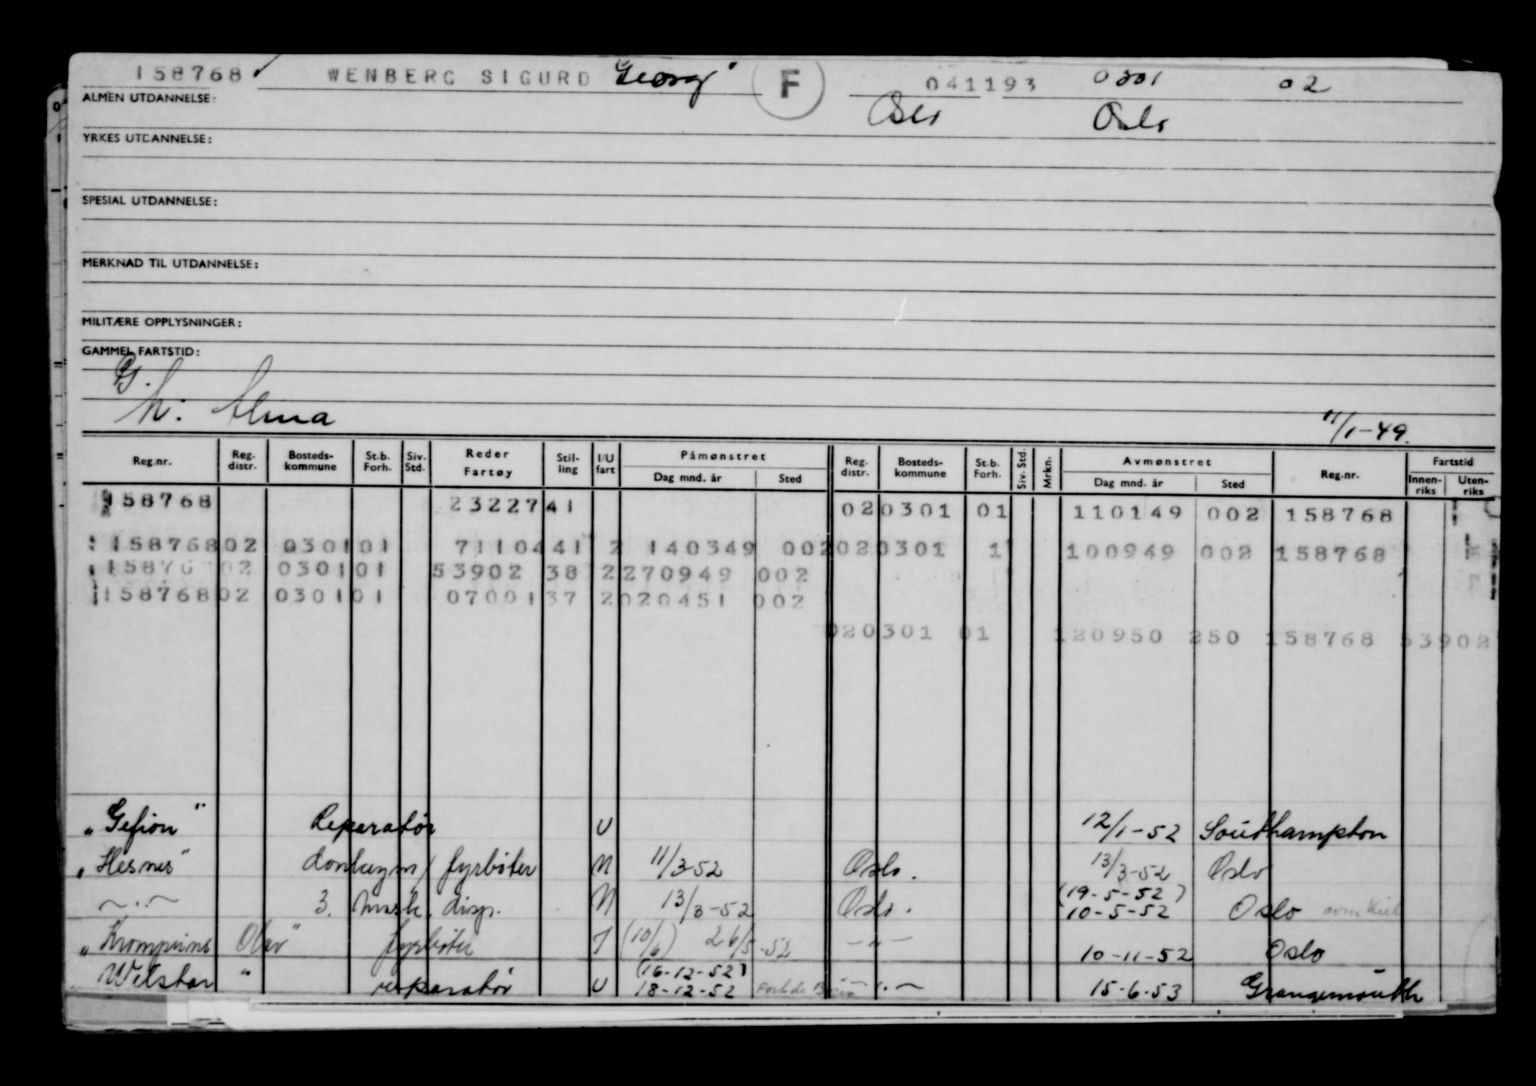 158768 WENBERG SIGURD Georg F 041193 0301 02
ALMEN UTDANNELSE: Oslo Oslo
YRKES UTDANNELSE:
SPESIAL UTDANNELSE:
MERKNAD TIL UTDANNELSE:
MILITÆRE OPPLYSNINGER:
GAMMEL FARTSTID:
G.
h: Alma 11/1-49.
Reg.nr. Reg. distr. Bosteds-kommune St.b. Forh. Siv. Std. Reder Fartøy Stil-ling I/U fart Påmønstret Dag mnd. år Sted Reg. distr. Bosteds-kommune St.b. Forh. Siv. Std. Mrkn. Avmønstret Dag mnd. år Sted Reg.nr. Fartstid Innen-riks Uten-riks
158768 2322741 020301 01 110149 002 158768
158768 02 0301 01 7110441 2 140349 002 020301 1 100949 002 158768
02 0301 01 53902 38 2 270949 002
158768 02 0301 01 07001 37 2 020451 002
020301 01 120950 250 158768 53902
"Gefion" Reparatør U 12/1-52 Southampton
"Hesnes" fyrbøter N 11/3-52 Oslo. 13/3-52 Oslo
— " — 3. mask. disp. N 13/3-52 Oslo. (19-5-52) 10-5-52 Oslo avm Kiel
"Kronprins Olav" fyrbøter (10/6) 26/5-52 — " — 10-11-52 Oslo
Welstar " reparatør U (16-12-52) 18-12-52 — " — 15-6-53 Grangemouth